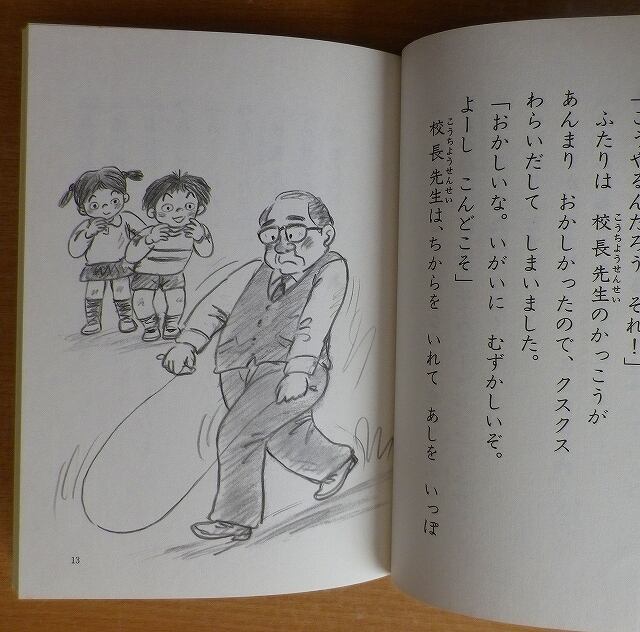 「こうやるんだろう それ！」
ふたりは 校長先生のかっこうが
こうちょうせんせい
あんまり おかしかったので、クスクス
わらいだして しまいました。
「おかしいな。いがいに むずかしいぞ。
よーし こんどこそ」
校長先生は、ちからを いれて あしを いっぽ
こうちょうせんせい
13